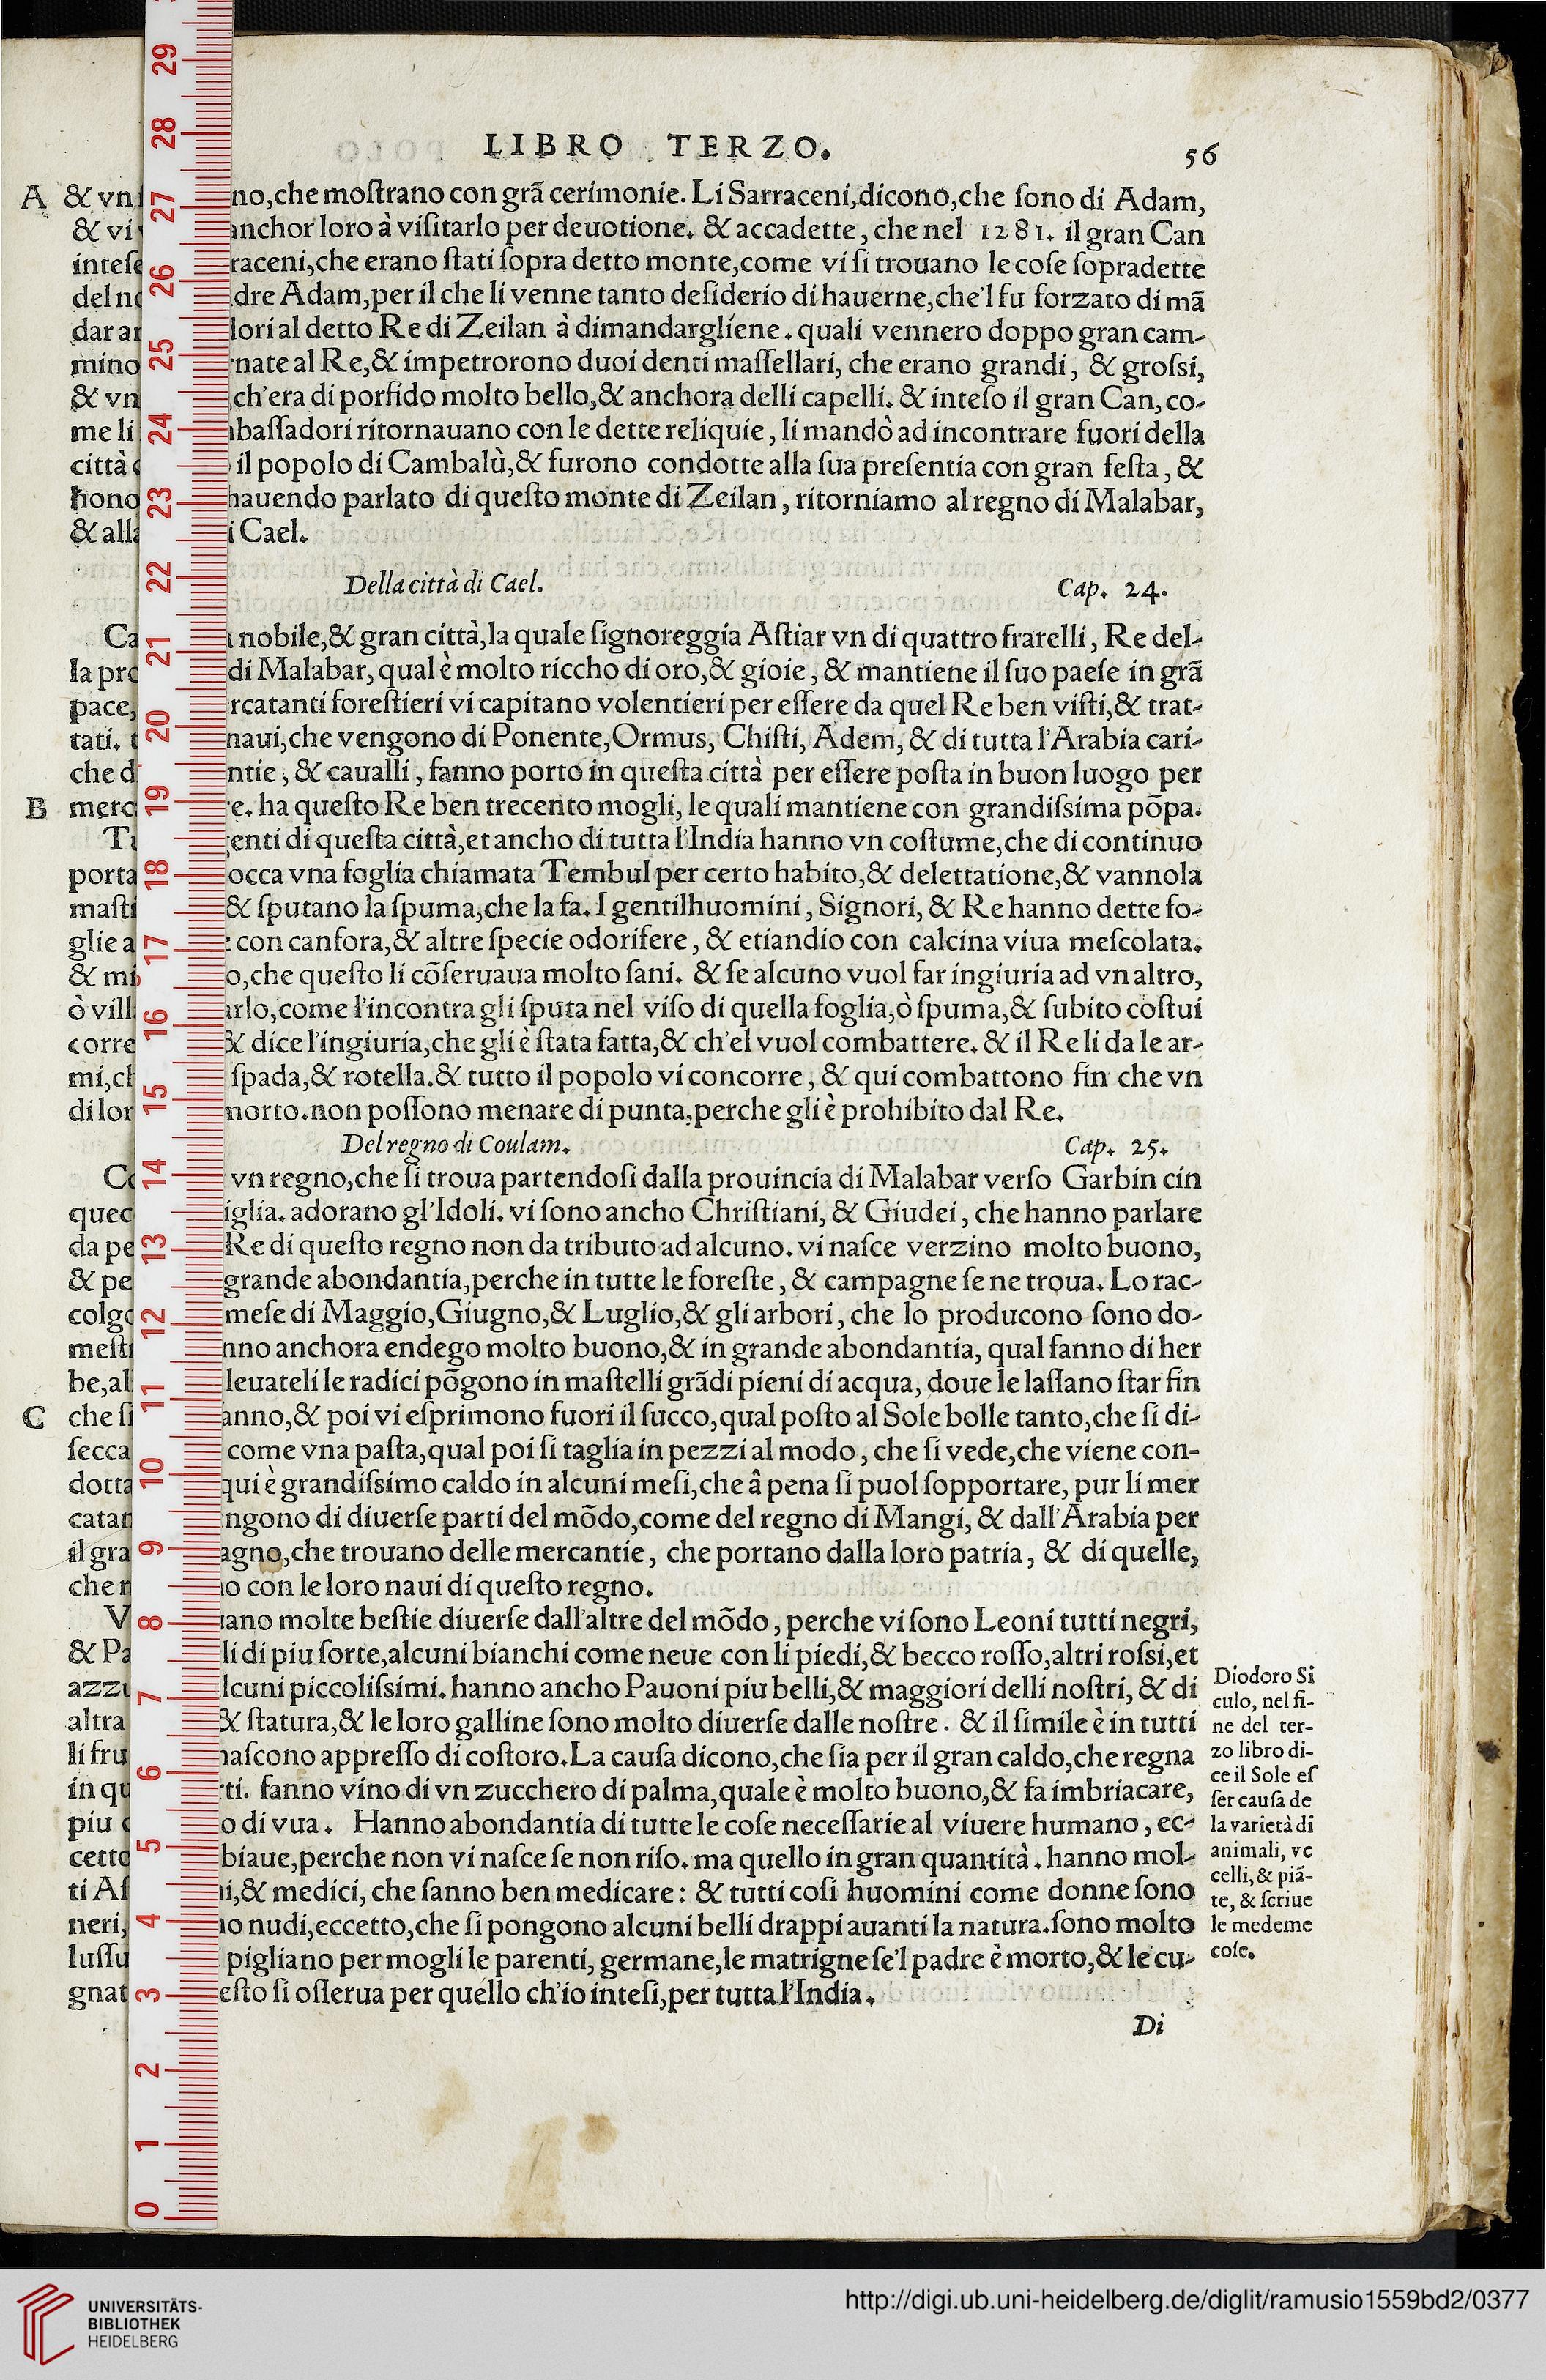 LIBRO TERZO.
56
A & vn no, che moſtrano con grã cerimonie. Li Sarraceni, dicono, che ſono di Adam,
& vi anchor loro à viſitarlo per deuotione. & accadette, che nel 1281. il gran Can
inteſe raceni, che erano ſtati ſopra detto monte, come vi ſi trouano le coſe ſopradette
del no dre Adam, per il che li venne tanto deſiderio di hauerne, che'l fu forzato di mã
dar a lori al detto Re di Zeilan à dimandargliene. quali vennero doppo gran cam-
mino nate al Re, & impetrorono duoi denti maſſellari, che erano grandi, & groſsi,
& vn ch'era di porfido molto bello, & anchora delli capelli. & inteſo il gran Can, co-
me li baſſadori ritornauano con le dette reliquie, li mandò ad incontrare fuori della
città il popolo di Cambalù, & furono condotte alla ſua preſentia con gran feſta, &
hono hauendo parlato di queſto monte di Zeilan, ritorniamo al regno di Malabar,
& all i Cael.
Della città di Cael. Cap. 24.
Ca nobile, & gran città, la quale ſignoreggia Aſtiar vn di quattro frarelli, Re del-
la pro di Malabar, qual è molto riccho di oro, & gioie, & mantiene il ſuo paeſe in grã
pace, rcatanti foreſtieri vi capitano volentieri per eſſere da quel Re ben viſti, & trat-
tati. naui, che vengono di Ponente, Ormus, Chiſti, Adem, & di tutta l'Arabia cari-
che d ntie, & caualli, fanno porto in queſta città per eſſere poſta in buon luogo per
B merc e. ha queſto Re ben trecento mogli, le quali mantiene con grandiſsima põpa.
T enti di queſta città, et ancho di tutta l'India hanno vn coſtume, che di continuo
porta occa vna foglia chiamata Tembul per certo habito, & delettatione, & vannola
maſti & ſputano la ſpuma, che la fa. I gentilhuomini, Signori, & Re hanno dette fo-
glie a con canfora, & altre ſpecie odorifere, & etiandio con calcina viua meſcolata.
& mi o, che queſto li cõſeruaua molto ſani. & ſe alcuno vuol far ingiuria ad vn altro,
ò vill arlo, come l'incontra gli ſputa nel viſo di quella foglia, ò ſpuma, & ſubito coſtui
corre & dice l'ingiuria, che gli è ſtata fatta, & ch'el vuol combattere. & il Re li da le ar-
mi, ch ſpada, & rotella. & tutto il popolo vi concorre, & qui combattono fin che vn
di lor morto. non poſſono menare di punta, perche gli è prohibito dal Re.
Del regno di Coulam. Cap. 25.
Co vn regno, che ſi troua partendoſi dalla prouincia di Malabar verſo Garbin cin
quec iglia. adorano gl'Idoli. vi ſono ancho Chriſtiani, & Giudei, che hanno parlare
da pe Re di queſto regno non da tributo ad alcuno. vi naſce verzino molto buono,
& pe grande abondantia, perche in tutte le foreſte, & campagne ſe ne troua. Lo rac-
colgo meſe di Maggio, Giugno, & Luglio, & gli arbori, che lo producono ſono do-
meſti nno anchora endego molto buono, & in grande abondantia, qual fanno di her
be, al leuateli le radici põgono in maſtelli grãdi pieni di acqua, doue le laſſano ſtar fin
C che ſi anno, & poi vi eſprimono fuori il ſucco, qual poſto al Sole bolle tanto, che ſi di-
ſecca come vna paſta, qual poi ſi taglia in pezzi al modo, che ſi vede, che viene con-
dotta qui è grandiſsimo caldo in alcuni meſi, che â pena ſi puol ſopportare, pur li mer
catan ngono di diuerſe parti del mõdo, come del regno di Mangi, & dall'Arabia per
il gra agno, che trouano delle mercantie, che portano dalla loro patria, & di quelle,
che r o con le loro naui di queſto regno.
V ano molte beſtie diuerſe dall'altre del mõdo, perche vi ſono Leoni tutti negri,
& Pa li di piu ſorte, alcuni bianchi come neue con li piedi, & becco roſſo, altri roſsi, et
azzu lcuni piccoliſsimi. hanno ancho Pauoni piu belli, & maggiori delli noſtri, & di
altra & ſtatura, & le loro galline ſono molto diuerſe dalle noſtre. & il ſimile è in tutti
li fru naſcono appreſſo di coſtoro. La cauſa dicono, che ſia per il gran caldo, che regna
in qu rti. fanno vino di vn zucchero di palma, quale è molto buono, & fa imbriacare,
piu o di vua. Hanno abondantia di tutte le coſe neceſſarie al viuere humano, ec-
cetto biaue, perche non vi naſce ſe non riſo. ma quello in gran quantità. hanno mol-
ti Aſ i, & medici, che ſanno ben medicare: & tutti coſi huomini come donne ſono
neri, o nudi, eccetto, che ſi pongono alcuni belli drappi auanti la natura. ſono molto
luſſu pigliano per mogli le parenti, germane, le matrigne ſe'l padre è morto, & le cu-
gnat eſto ſi oſſerua per quello ch'io inteſi, per tutta l'India.
Di
Diodoro Si
culo, nel fi-
ne del ter-
zo libro di-
ce il Sole eſ
ſer cauſa de
la varietà di
animali, vc
celli, & piã-
te, & ſcriue
le medeme
coſe.
29
28
27
26
25
24
23
22
21
20
19
18
17
16
15
14
13
12
11
10
9
8
7
6
5
4
3
2
1
0
UNIVERSITÄTS-
BIBLIOTHEK
HEIDELBERG
http://digi.ub.uni-heidelberg.de/diglit/ramusio1559bd2/0377